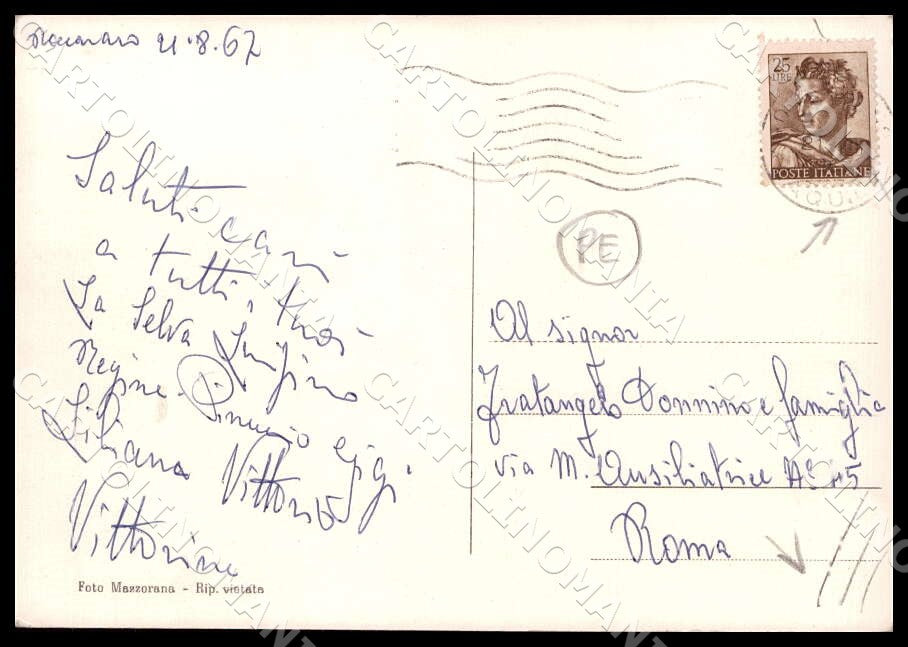 21.8.67
25
LIRE
POSTE ITALIANE
PE
Saluti cari
a tutti, tuoi
La Selva Luigino
Regina
Liliana Vittorio
Vittorina
Al signor
Fratangelo Donnino e famiglia
via M. Ausiliatrice No 45
Roma
Foto Mazzorana - Rip. vietata
CARTOLINOMANIA